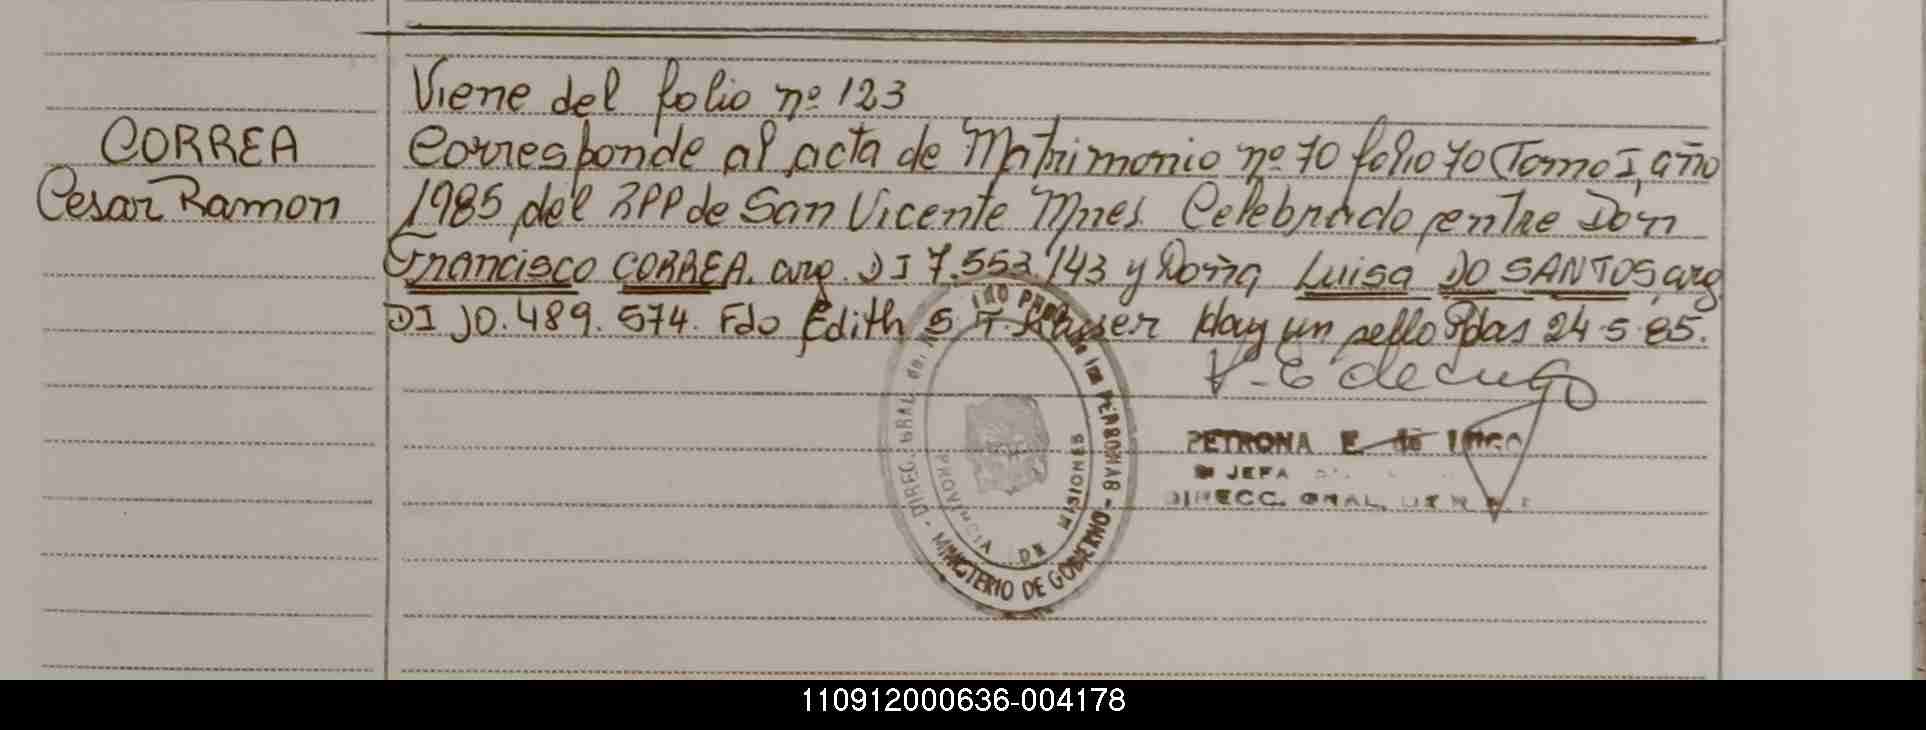 Viene del folio nº 123
CORREA
Cesar Ramon
Corresponde al acta de Matrimonio nº 70 folio 70 Tomo I, año
1985 del RPP de San Vicente Mnes. Celebrado entre Don
Francisco CORREA. arg. DI 7.553.743 y Doña Luisa DO SANTOS, arg
DI 10.489.574. Fdo Edith S T. Hay un sello Pdas 24-5-85.
PETRONA E. de LUGO
JEFA
DIRECC. GRAL.
DIREC. GRAL. del REGISTRO PROV. de las PERSONAS - MINISTERIO DE GOBIERNO -
PROVINCIA DE MISIONES
110912000636-004178